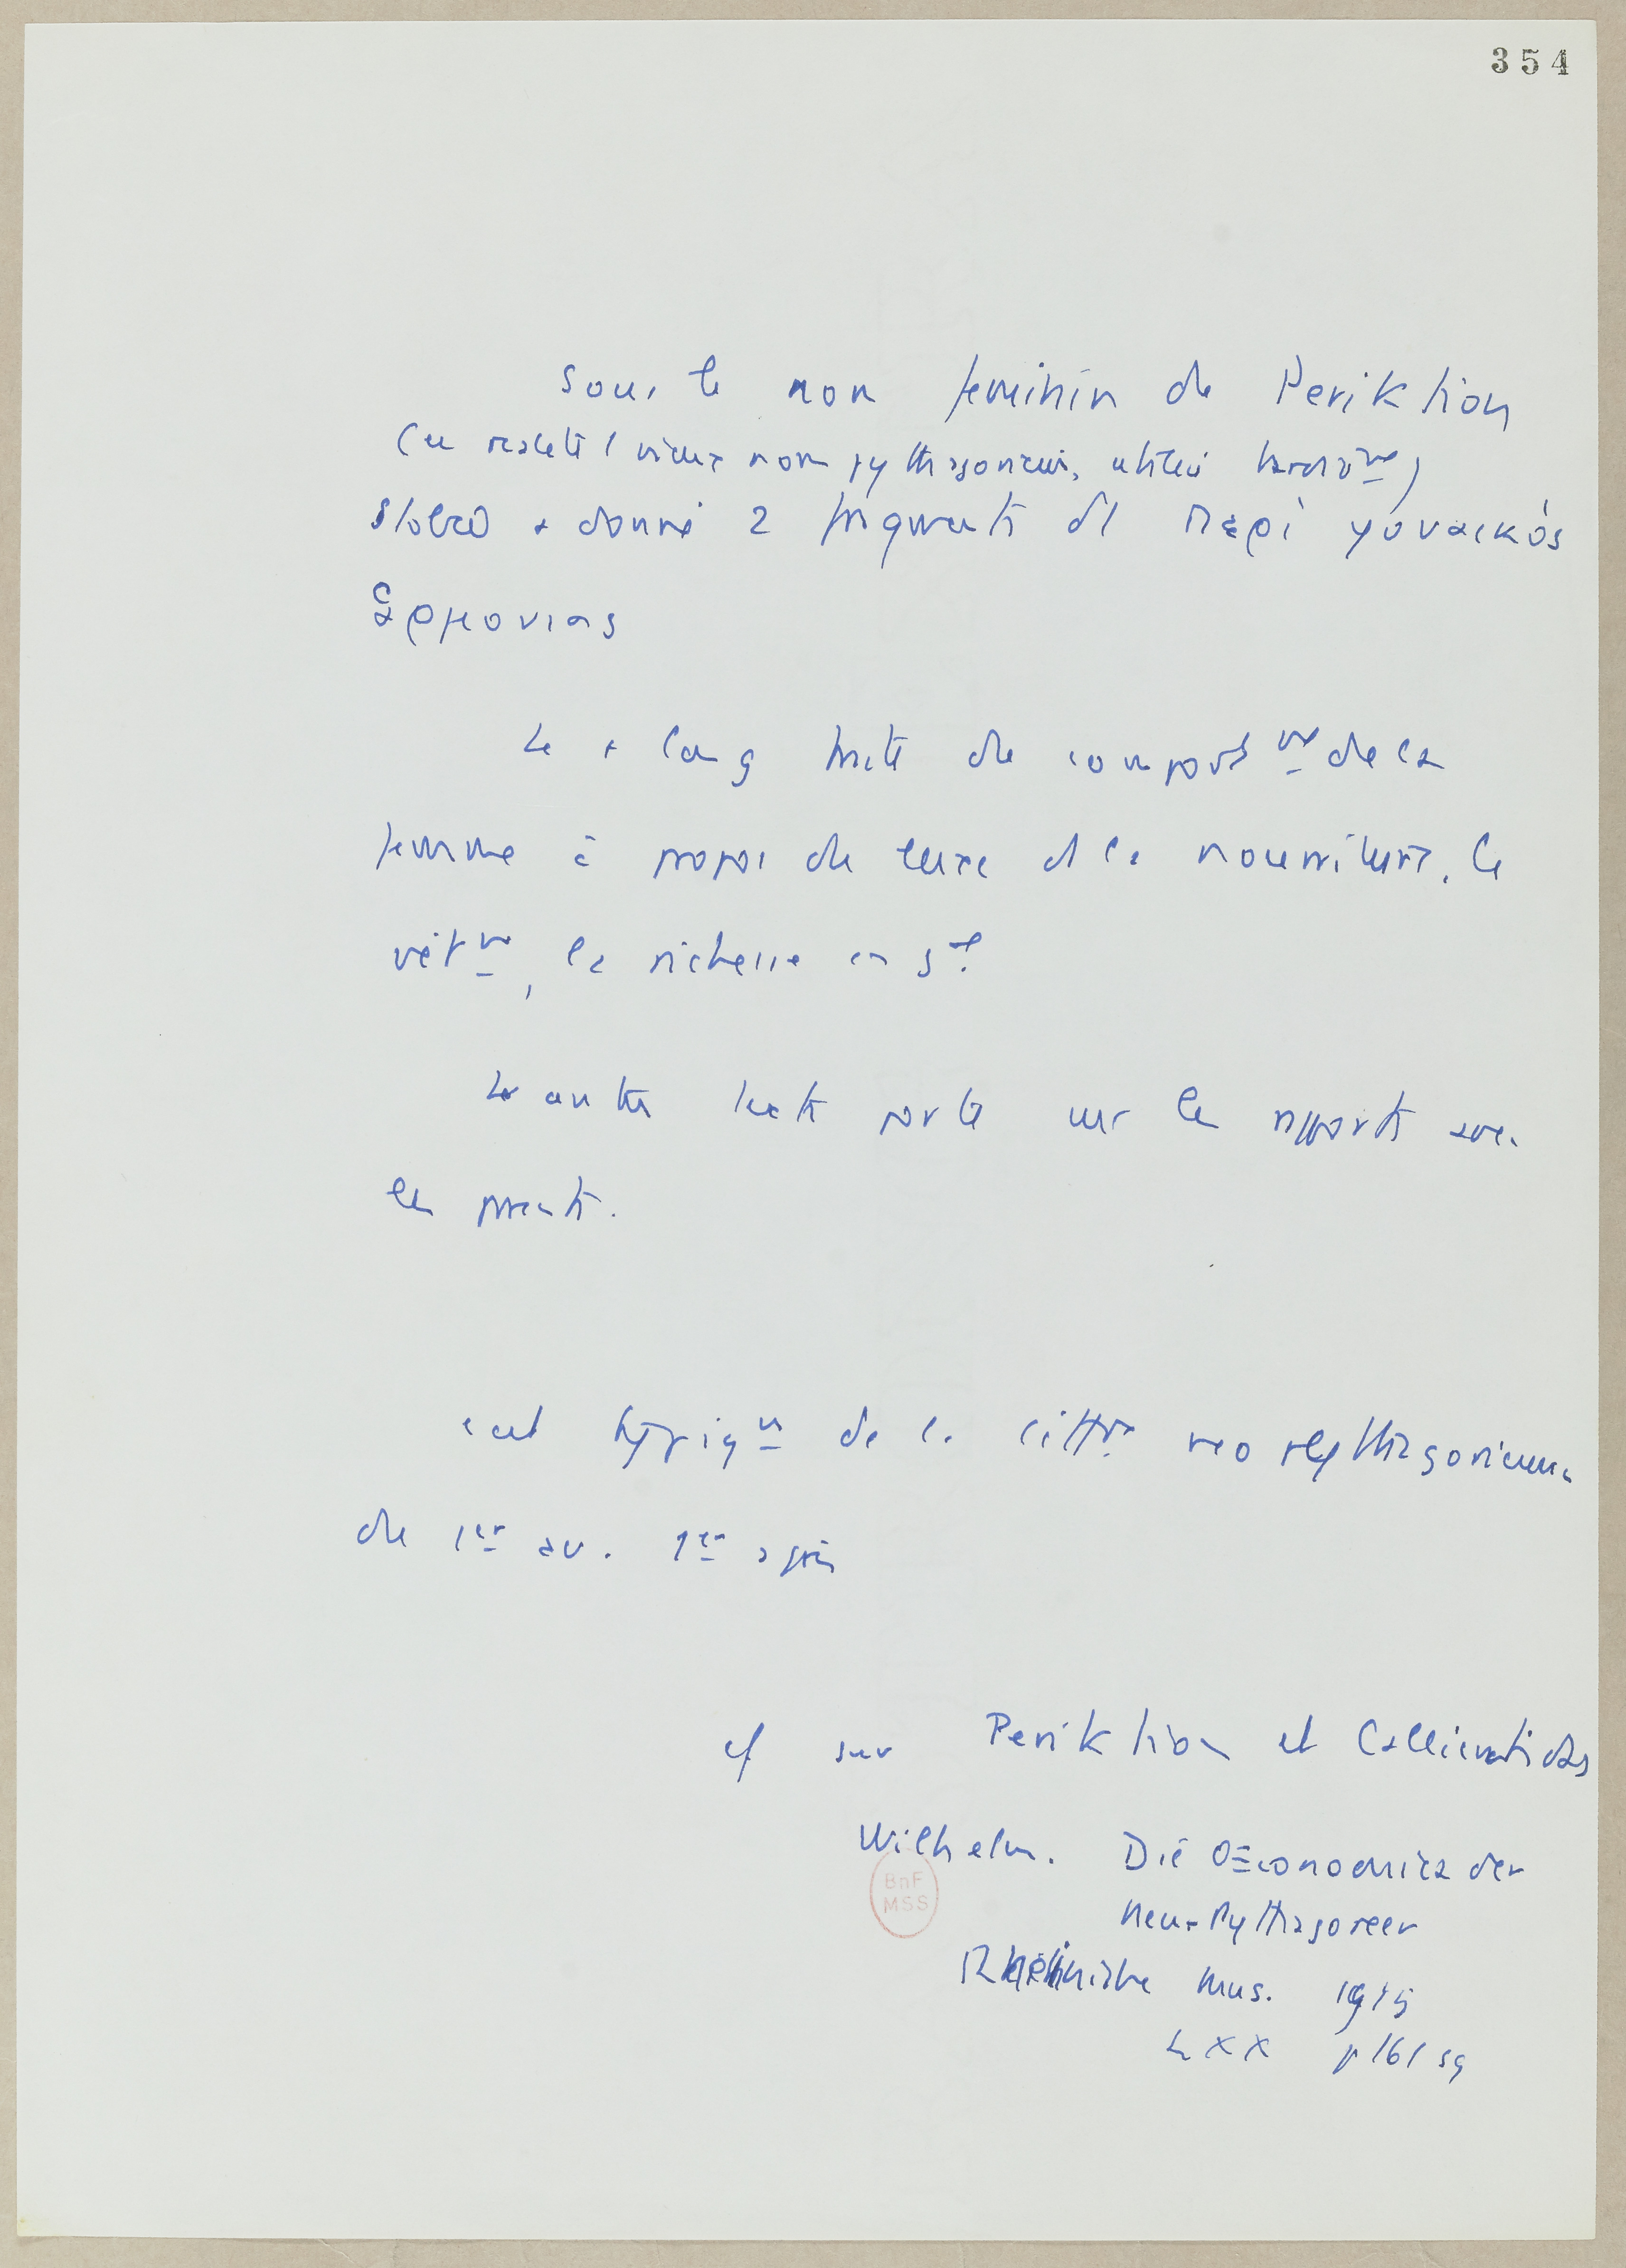 354
Sous le nom feminin de Periktion
(en realité 1 vieux nom pythagoricien, utilisé
Stobée a donné 2 fragments d1 περὶ γυναικός
ἁρμονιας
Le + long traite de comportmt de la
femme à propos de luxe d la nourriture, le
vêtmt, la richesse en gal
Le autre texte porte sur les rapports avec
les parents.
est typique de la littre neo pythagoricienne
de 1er av. 1er après
cf sur Periktion et Callicratidas
Wilhelm. Die OEconomica der
Neu-Pythagoreer
Rheinische Mus. 1915
LXX p 161 sq
BnF
MSS